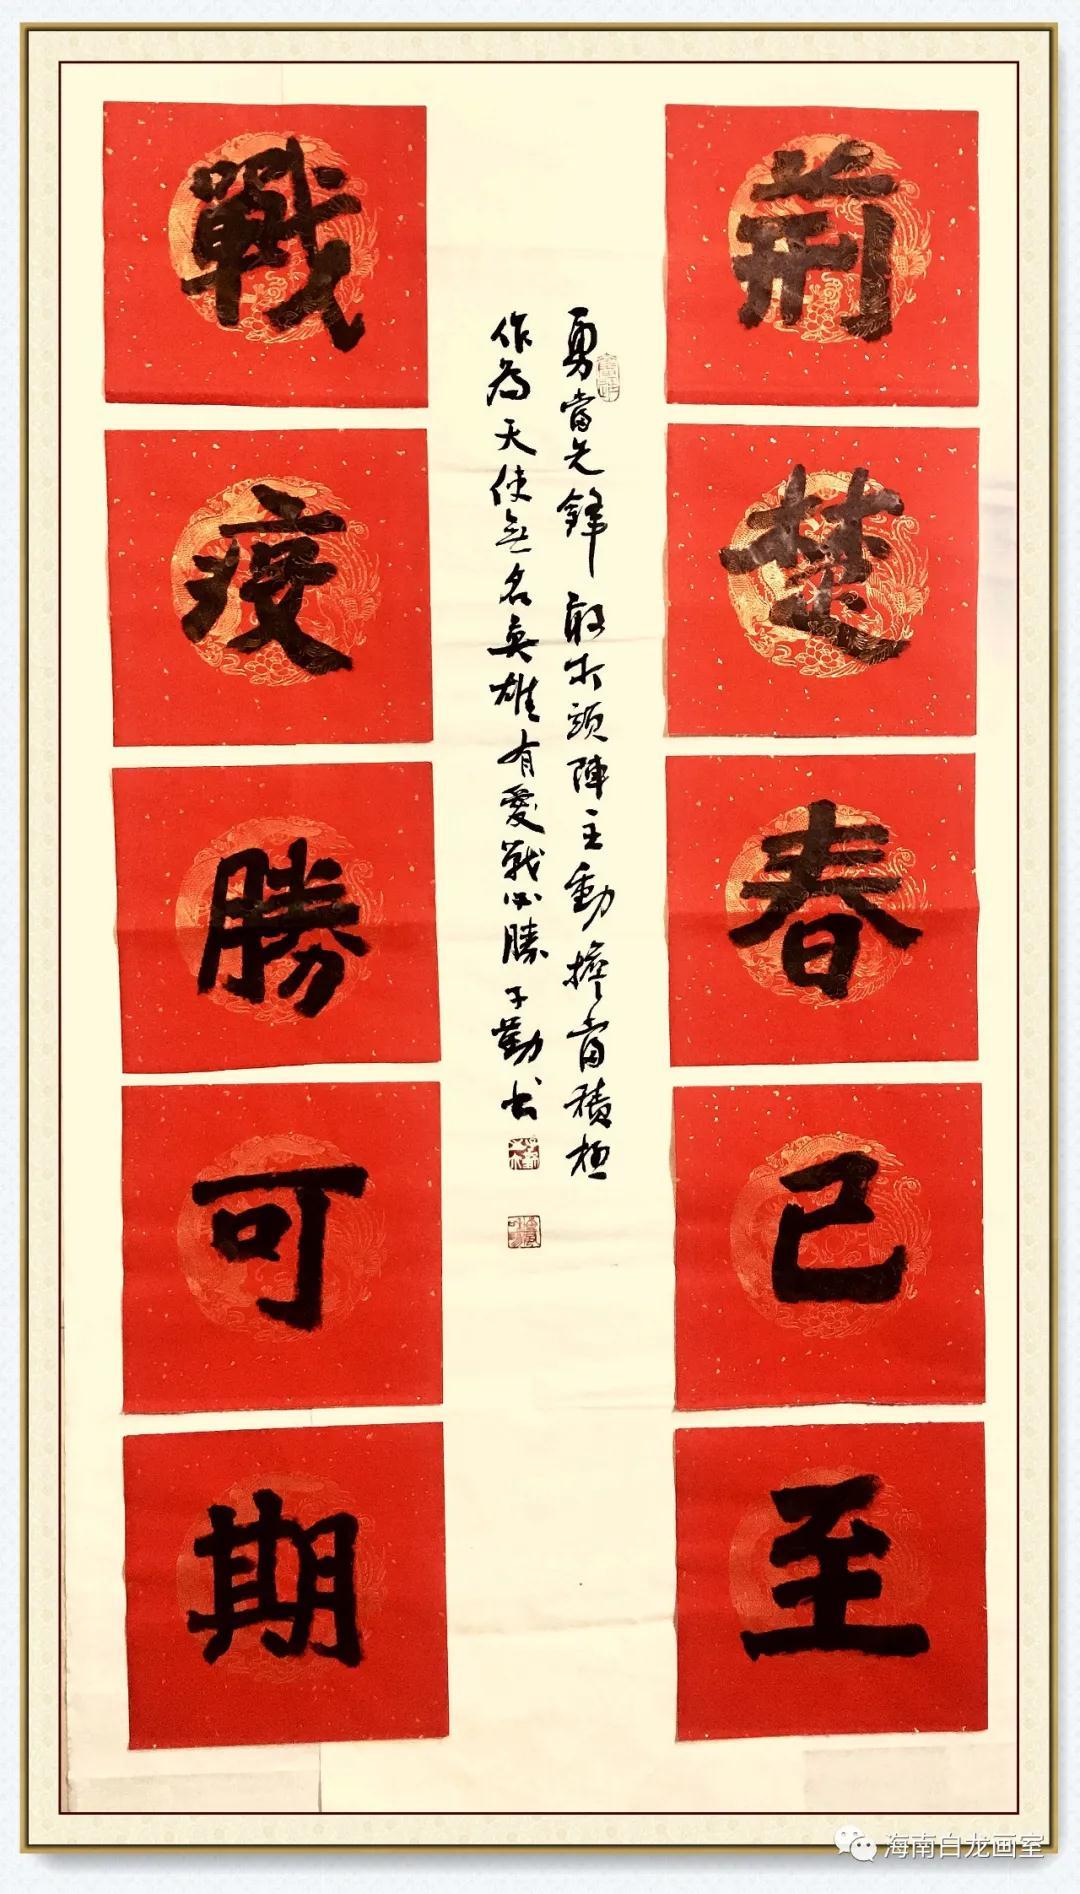 荊楚春已至
勇當先鋒敢打頭陣主動擔當積極
作為天使無名英雄有愛戰必勝子勤书
戰疫勝可期
海南白龙画室